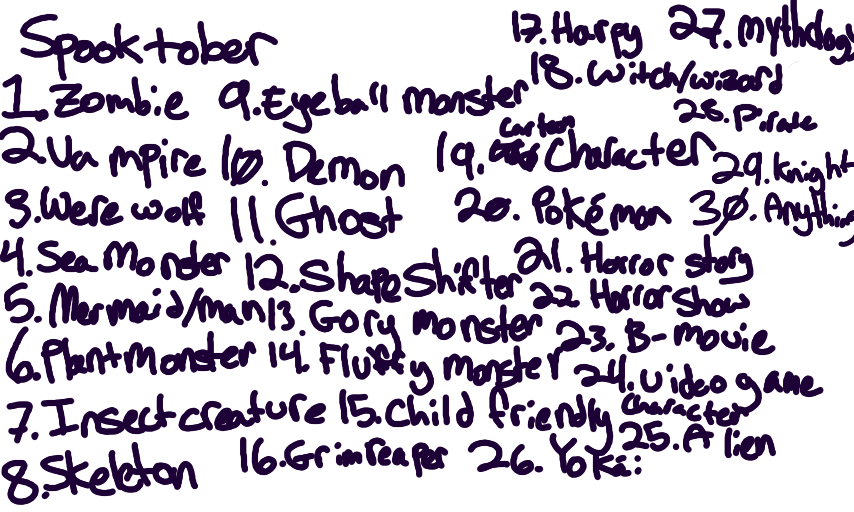 Spooktober
1. Zombie
2. Vampire
3. Werewolf
4. Sea Monster
5. Mermaid/man
6. Plant monster
7. Insect creature
8. Skeleton
9. Eyeball monster
10. Demon
11. Ghost
12. Shape Shifter
13. Gory monster
14. Fluffy monster
15. Child friendly
16. Grim reaper
17. Harpy
18. Witch/wizard
19. Cartoon Character
20. Pokémon
21. Horror story
22. Horror Show
23. B-movie
24. Video game
Character
25. Alien
26. Yokai
27. Mythology
28. Pirate
29. Knight
30. Anything